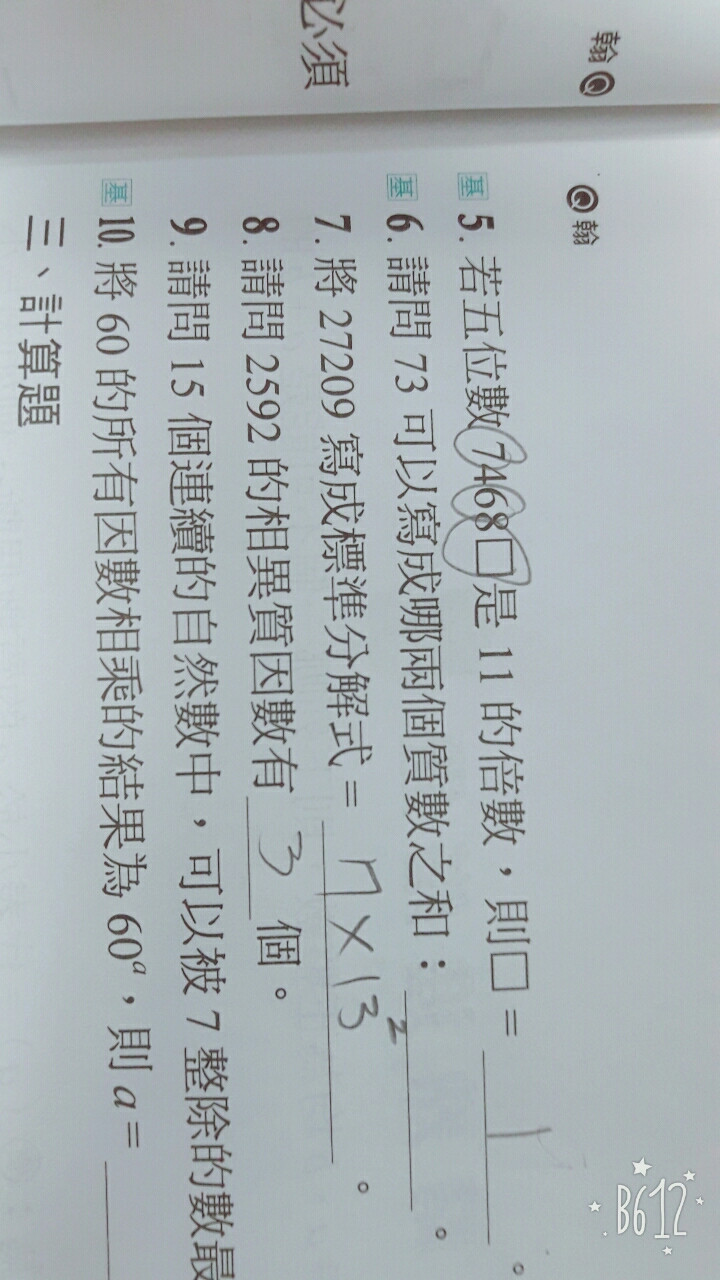 必須
翰
翰
基 5. 若五位數7468□是 11 的倍數，則□ = 1 。
基 6. 請問 73 可以寫成哪兩個質數之和： 。
7. 將 27209 寫成標準分解式 = 7×13² 。
8. 請問 2592 的相異質因數有 3 個。
9. 請問 15 個連續的自然數中，可以被 7 整除的數最
基 10. 將 60 的所有因數相乘的結果為 60ᵃ，則 a =
三、計算題
B612